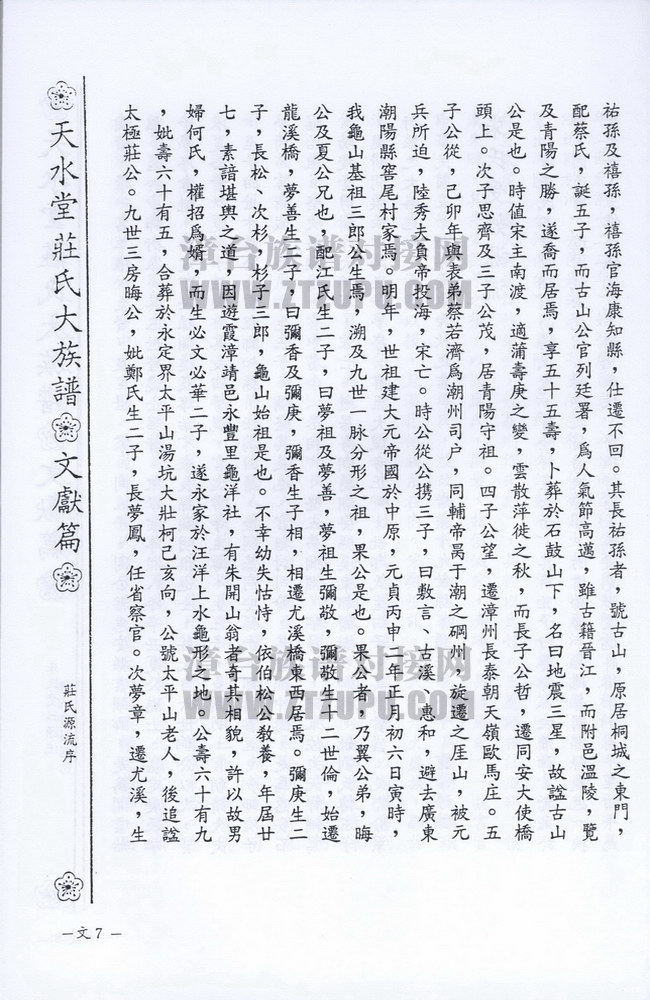 祐孫及禧孫，禧孫官海康知縣，仕遷不回。其長祐孫者，號古山，原居桐城之東門，
配蔡氏，誕五子，而古山公官列廷署，爲人氣節高邁，雖古籍晉江，而附邑溫陵，覽
及青陽之勝，遂喬而居焉，享五十五壽，卜葬於石鼓山下，名曰地震三星，故諡古山
公是也。時值宋主南渡，適蒲壽庚之變，雲散萍徙之秋，而長子公哲，遷同安大使橋
頭上。次子思齊及三子公茂，居青陽守祖。四子公望，遷漳州長泰朝天嶺歐馬庄。五
子公從，己卯年與表弟蔡若濟爲潮州司户，同輔帝昺于潮之硐州，旋遷之厓山，被元
兵所迫，陸秀夫負帝投海，宋亡。時公從公携三子，曰敷言、古溪、惠和，避去廣東
潮陽縣窖尾村家焉。明年，世祖建大元帝國於中原，元貞丙申二年正月初六日寅時，
我龜山基祖三郎公生焉，溯及九世一脉分形之祖，果公是也。果公者，乃翼公弟，晦
公及夏公兄也，配江氏生二子，曰夢祖及夢善，夢祖生彌敬，彌敬生十二世倫，始遷
龍溪橋，夢善生二子，曰彌香及彌庚，彌香生子相，相遷尤溪橋東西居焉。彌庚生二
子，長松、次杉，杉子三郎，龜山始祖是也。不幸幼失怙恃，依伯松公敎養，年屆廿
七，素諳堪輿之道，因遊霞漳靖邑永豐里龜洋社，有朱開山翁者奇其相貌，許以故男
婦何氏，權招爲婿，而生必文必華二子，遂永家於汪洋上水龜形之地。公壽六十有九
，妣壽六十有五，合葬於永定界太平山湯坑大壯柯己亥向，公號太平山老人，後追諡
太極莊公。九世三房晦公，妣鄭氏生二子，長夢鳳，任省察官。次夢章，遷尤溪，生
天水堂 莊氏大族譜 文獻篇
莊氏源流序
—文 7 —
漳台族谱对接网
WWW.ZTZUPU.COM
漳台族谱对接网
WWW.ZTZUPU.COM